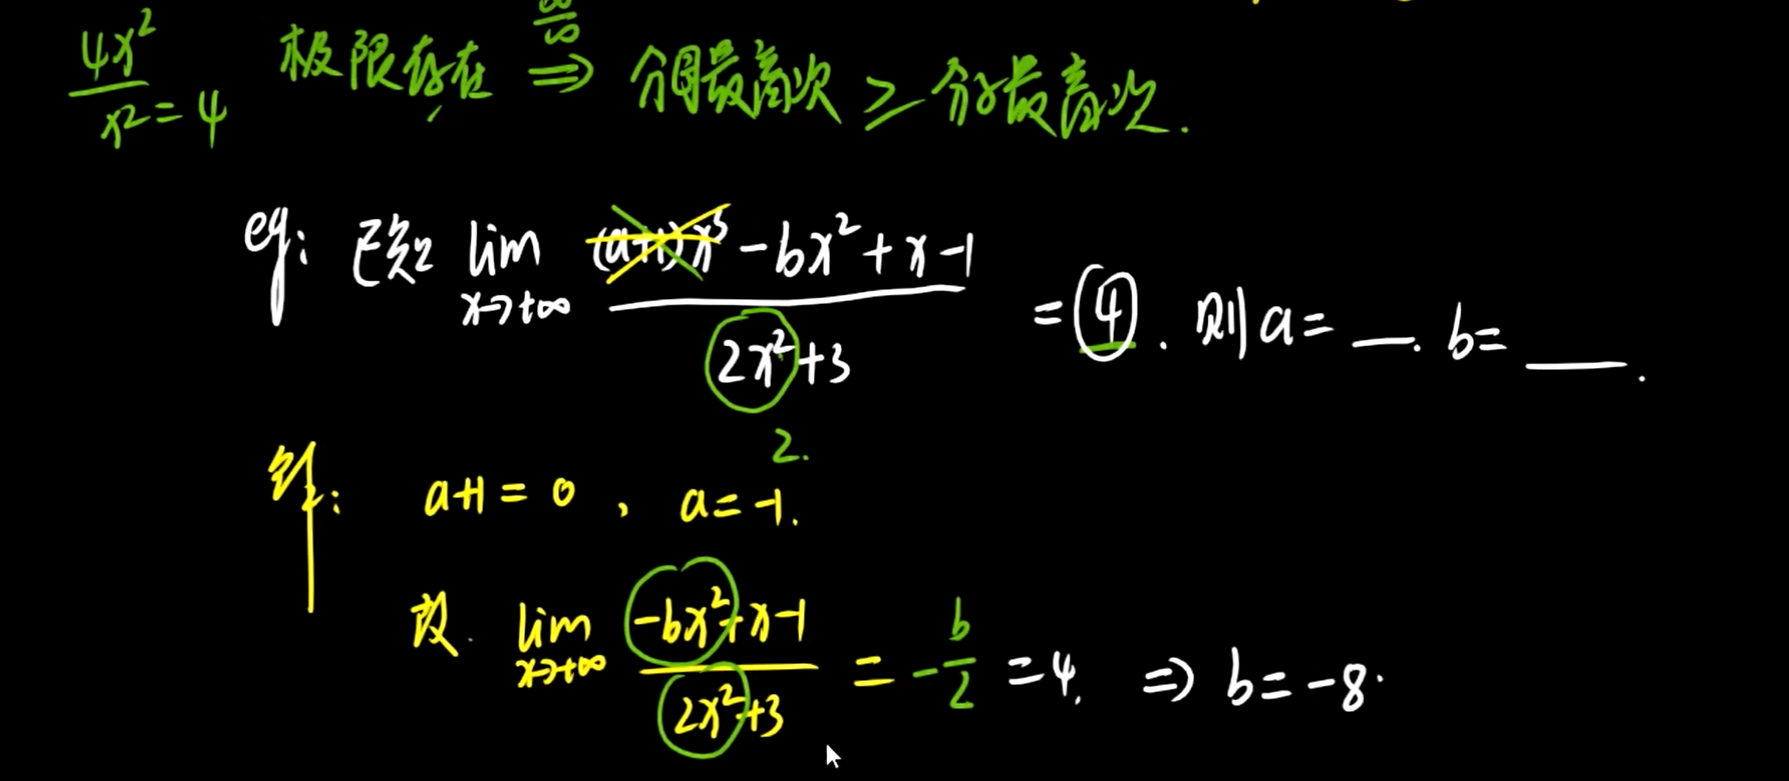 4x²/x² = 4 极限存在, ∞/∞ ⇒ 分母最高次 ≥ 分子最高次.
eg: 已知 lim x→+∞ ((a+1)x³ - bx² + x - 1)/(2x²+3) = 4. 则 a = __. b = ___.
2.
解: a+1 = 0, a = -1.
故. lim x→+∞ (-bx²+x-1)/(2x²+3) = -b/2 = 4. ⇒ b = -8.